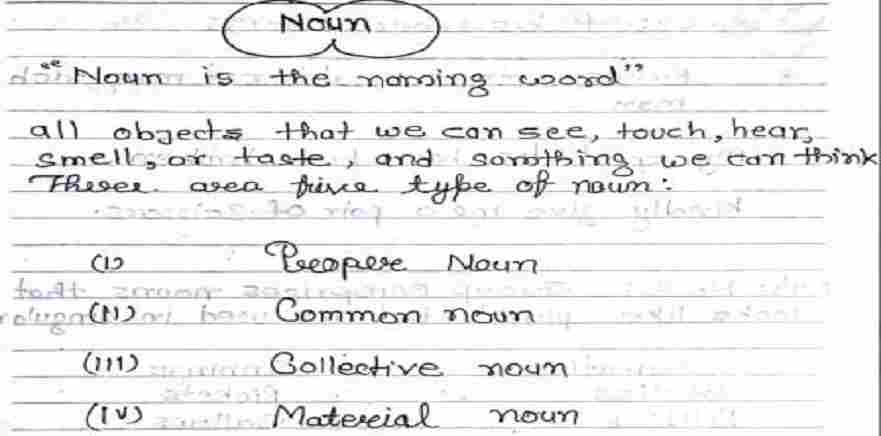 Noun
"Noun is the naming word"
all objects that we can see, touch, hear,
smell, or taste, and somthing we can think
There are five type of noun:
(I) Proper Noun
(II) Common noun
(III) Collective noun
(IV) Material noun